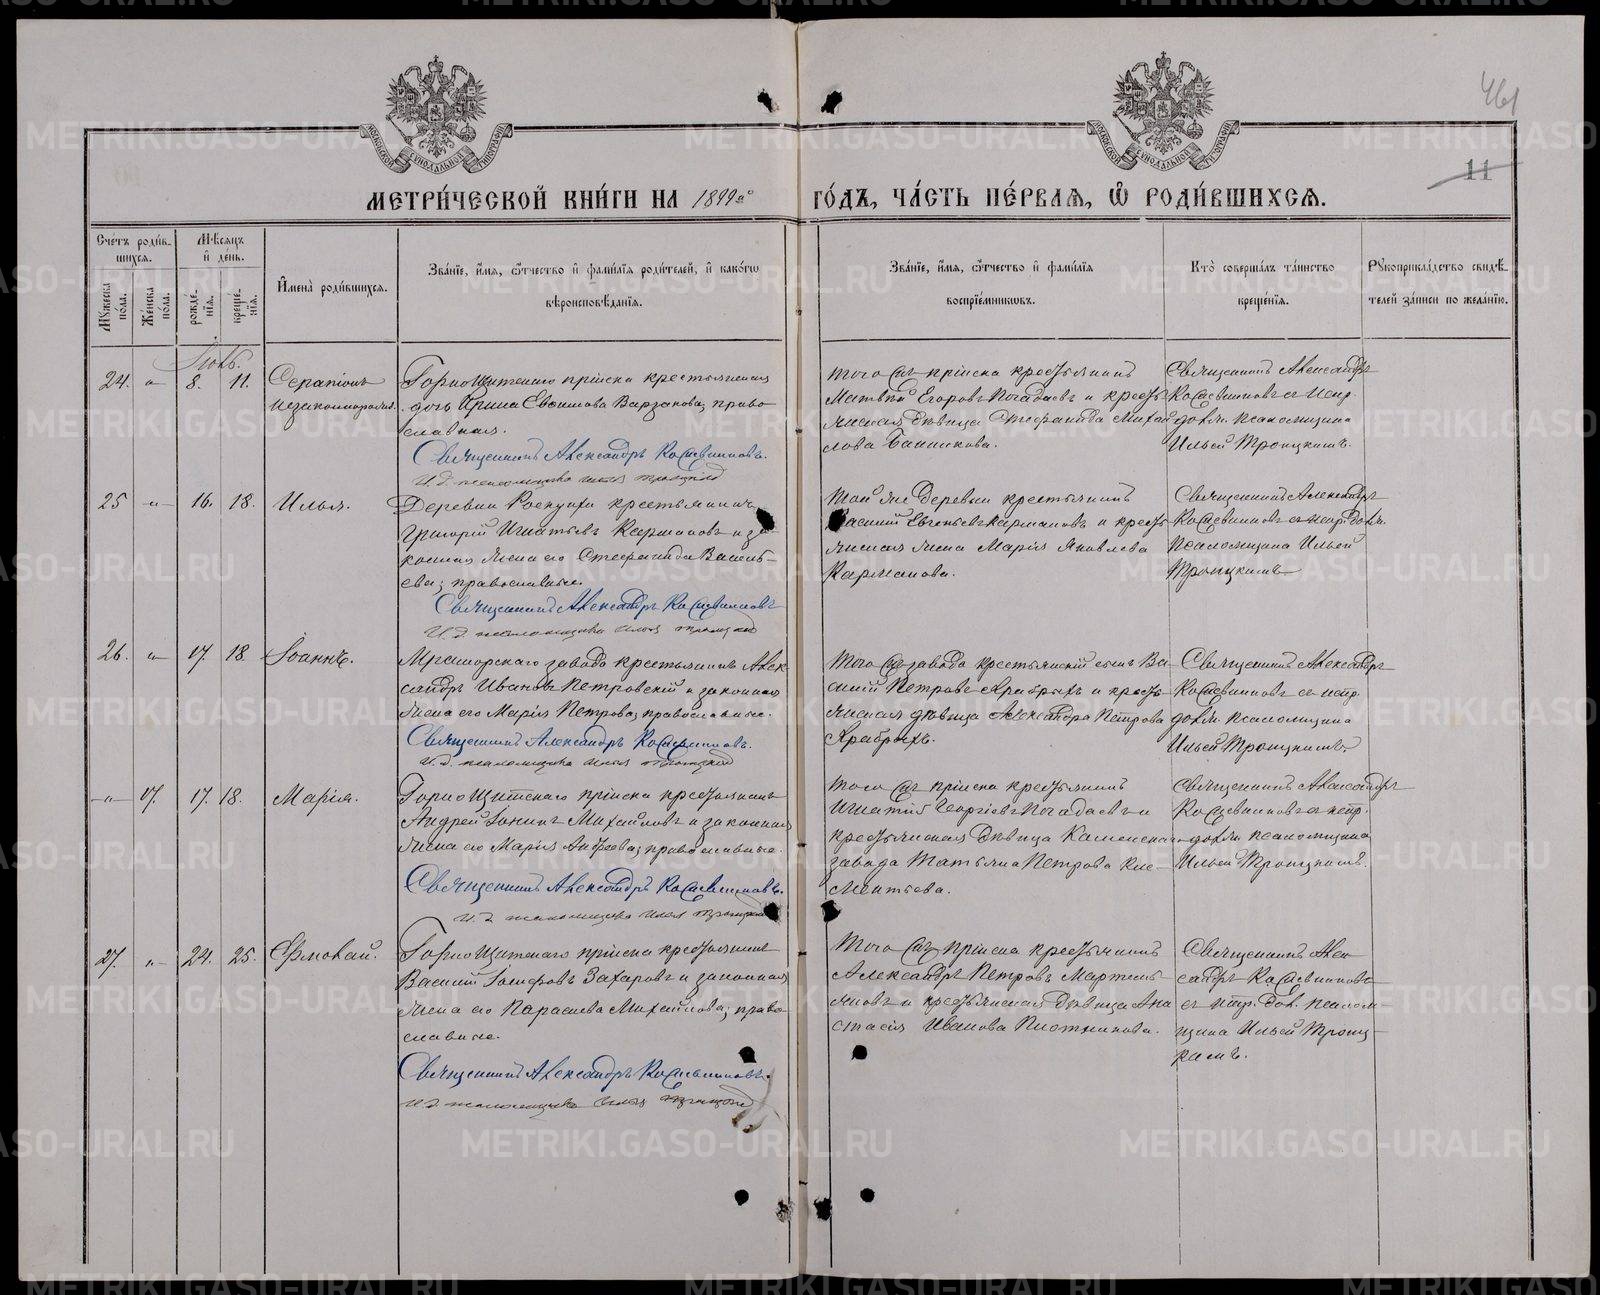 461
11
МЕТРИ́ЧЕСКОЙ КНИ́ГИ НА 1899й ГО́ДЪ, ЧА́СТЬ ПЕ́РВАѦ, Ѽ РОДИ́ВШИХСѦ.
Сче́тъ роди́в-
шихся.
Мѣ́сяцъ
и де́нь.
Му́жеска
по́ла.
Же́нска
по́ла.
рожде́-
нія.
креще́-
нія.
Имена̀ роди́вшихся.
Зва́ніе, и́мя, ѻ́тчество и фами́лія роди́телей, и како́гѡ
вѣроисповѣ́данія.
Зва́ніе, и́мя, ѻ́тчество и фами́лія
воспріе́мникѡвъ.
Кто̀ соверша́лъ та́инство
креще́нія.
Рукоприкла́дство свидѣ́-
телей за́писи по жела́нію.
Іюль.
24. „ 8. 11. Серапіонъ
незаконнорожд.
Горнощитскаго пріиска крестьянская
дочь Ирина Варзакова, право
славная.
Священникъ Александръ
И.д. псаломщика Илья Троицкій
того же пріиска крестьянинъ
Матвій Егоровъ Погадаевъ и кресть
янская дѣвица Стефанида Михай
лова Банникова.
Священникъ Александръ
съ испр.
долж. псаломщика
Ильей Троицкимъ.
25 „ 16. 18. Илья.
Деревни крестьянинъ
Григорій Игнатьевъ Кармановъ и за
конная жена его Стефанида Василь-
ева; православные.
Священникъ Александръ
И.д. псаломщика Илья Троицкій
Той же деревни крестьянинъ
Василій Евгеньевъ Кармановъ и кресть
янская жена Марія Яковлева
Карманова.
Священникъ Александръ
съ испр. долж.
псаломщика Ильей
Троицкимъ
26. „ 17. 18 Іоаннъ.
Мраморскаго завода крестьянинъ Алек
сандръ Ивановъ Петровскій и законная
жена его Марія Петрова; православные.
Священникъ Александръ
И.д. псаломщика Илья Троицкій
Того же завода крестьянскій сынъ Ва-
силій Петровъ Храбрыхъ и кресть
янская дѣвица Александра Петрова
Храбрыхъ.
Священникъ Александръ
съ испр.
долж. псаломщика
Ильей Троицкимъ.
„ 17. 17. 18. Марія.
Горнощитскаго пріиска крестьянинъ
Андрей Іонинъ Михайловъ и законная
жена его Марія Андреева; православные.
Священникъ Александръ
И.д. псаломщика Илья Троицкій
Того же пріиска крестьянинъ
Игнатій Георгіевъ Погадаевъ и
крестьянская дѣвица Каменскаго
завода Татьяна Петрова Кле-
ментьева.
Священникъ Александръ
съ испр.
долж. псаломщика
Ильей Троицкимъ.
27. „ 24. 25. Ермолай.
Горнощитскаго пріиска крестьянинъ
Василій Іосифовъ Захаровъ и законная
жена его Параскева Михайлова; право-
славные.
Священникъ Александръ
И.д. псаломщика Илья Троицкій
Того же пріиска крестьянинъ
Александръ Петровъ Мартемь-
яновъ и крестьянская дѣвица Ана
стасія Иванова Плотникова.
Священникъ Алек
сандръ
съ испр. дол. псалом-
щика Ильей Троиц-
кимъ.